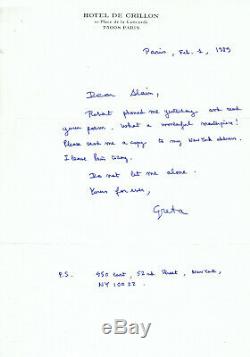 HOTEL DE CRILLON
10 Place de la Concorde
75008 PARIS
Paris, Feb. 1, 1989
Dear Alain,
Robert phoned me yesterday and read
your poem. What a wonderful masterpiece!
Please send me a copy to my New York address.
I leave Paris today.
Do not let me alone.
Yours for ever,
Greta
P.S. 450 East, 52nd Street, New York,
NY 10022